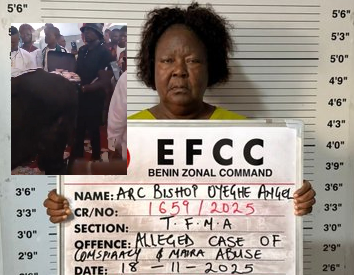 5'6"
5'3"
5'0"
4'9"
4'6"
4'3"
3'9"
3'6"
3'3"
3'0"
2'9"
2'6"
5'6"
5'3"
5'0"
3'6"
3'3"
2'9"
2'6"
EFCC
BENIN ZONAL COMMAND
NAME: ARC BISHOP UYEGHE ANGEL
CR/NO: 1659/2025
SECTION: T.F.M.A
OFFENCE: ALLEGED CASE OF
CONSPIRACY & NAIRA ABUSE
DATE: 18-11-2025